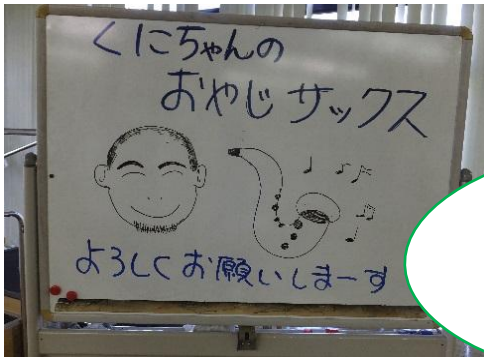 くにちゃんの
おやじサックス
よろしくお願いしまーす